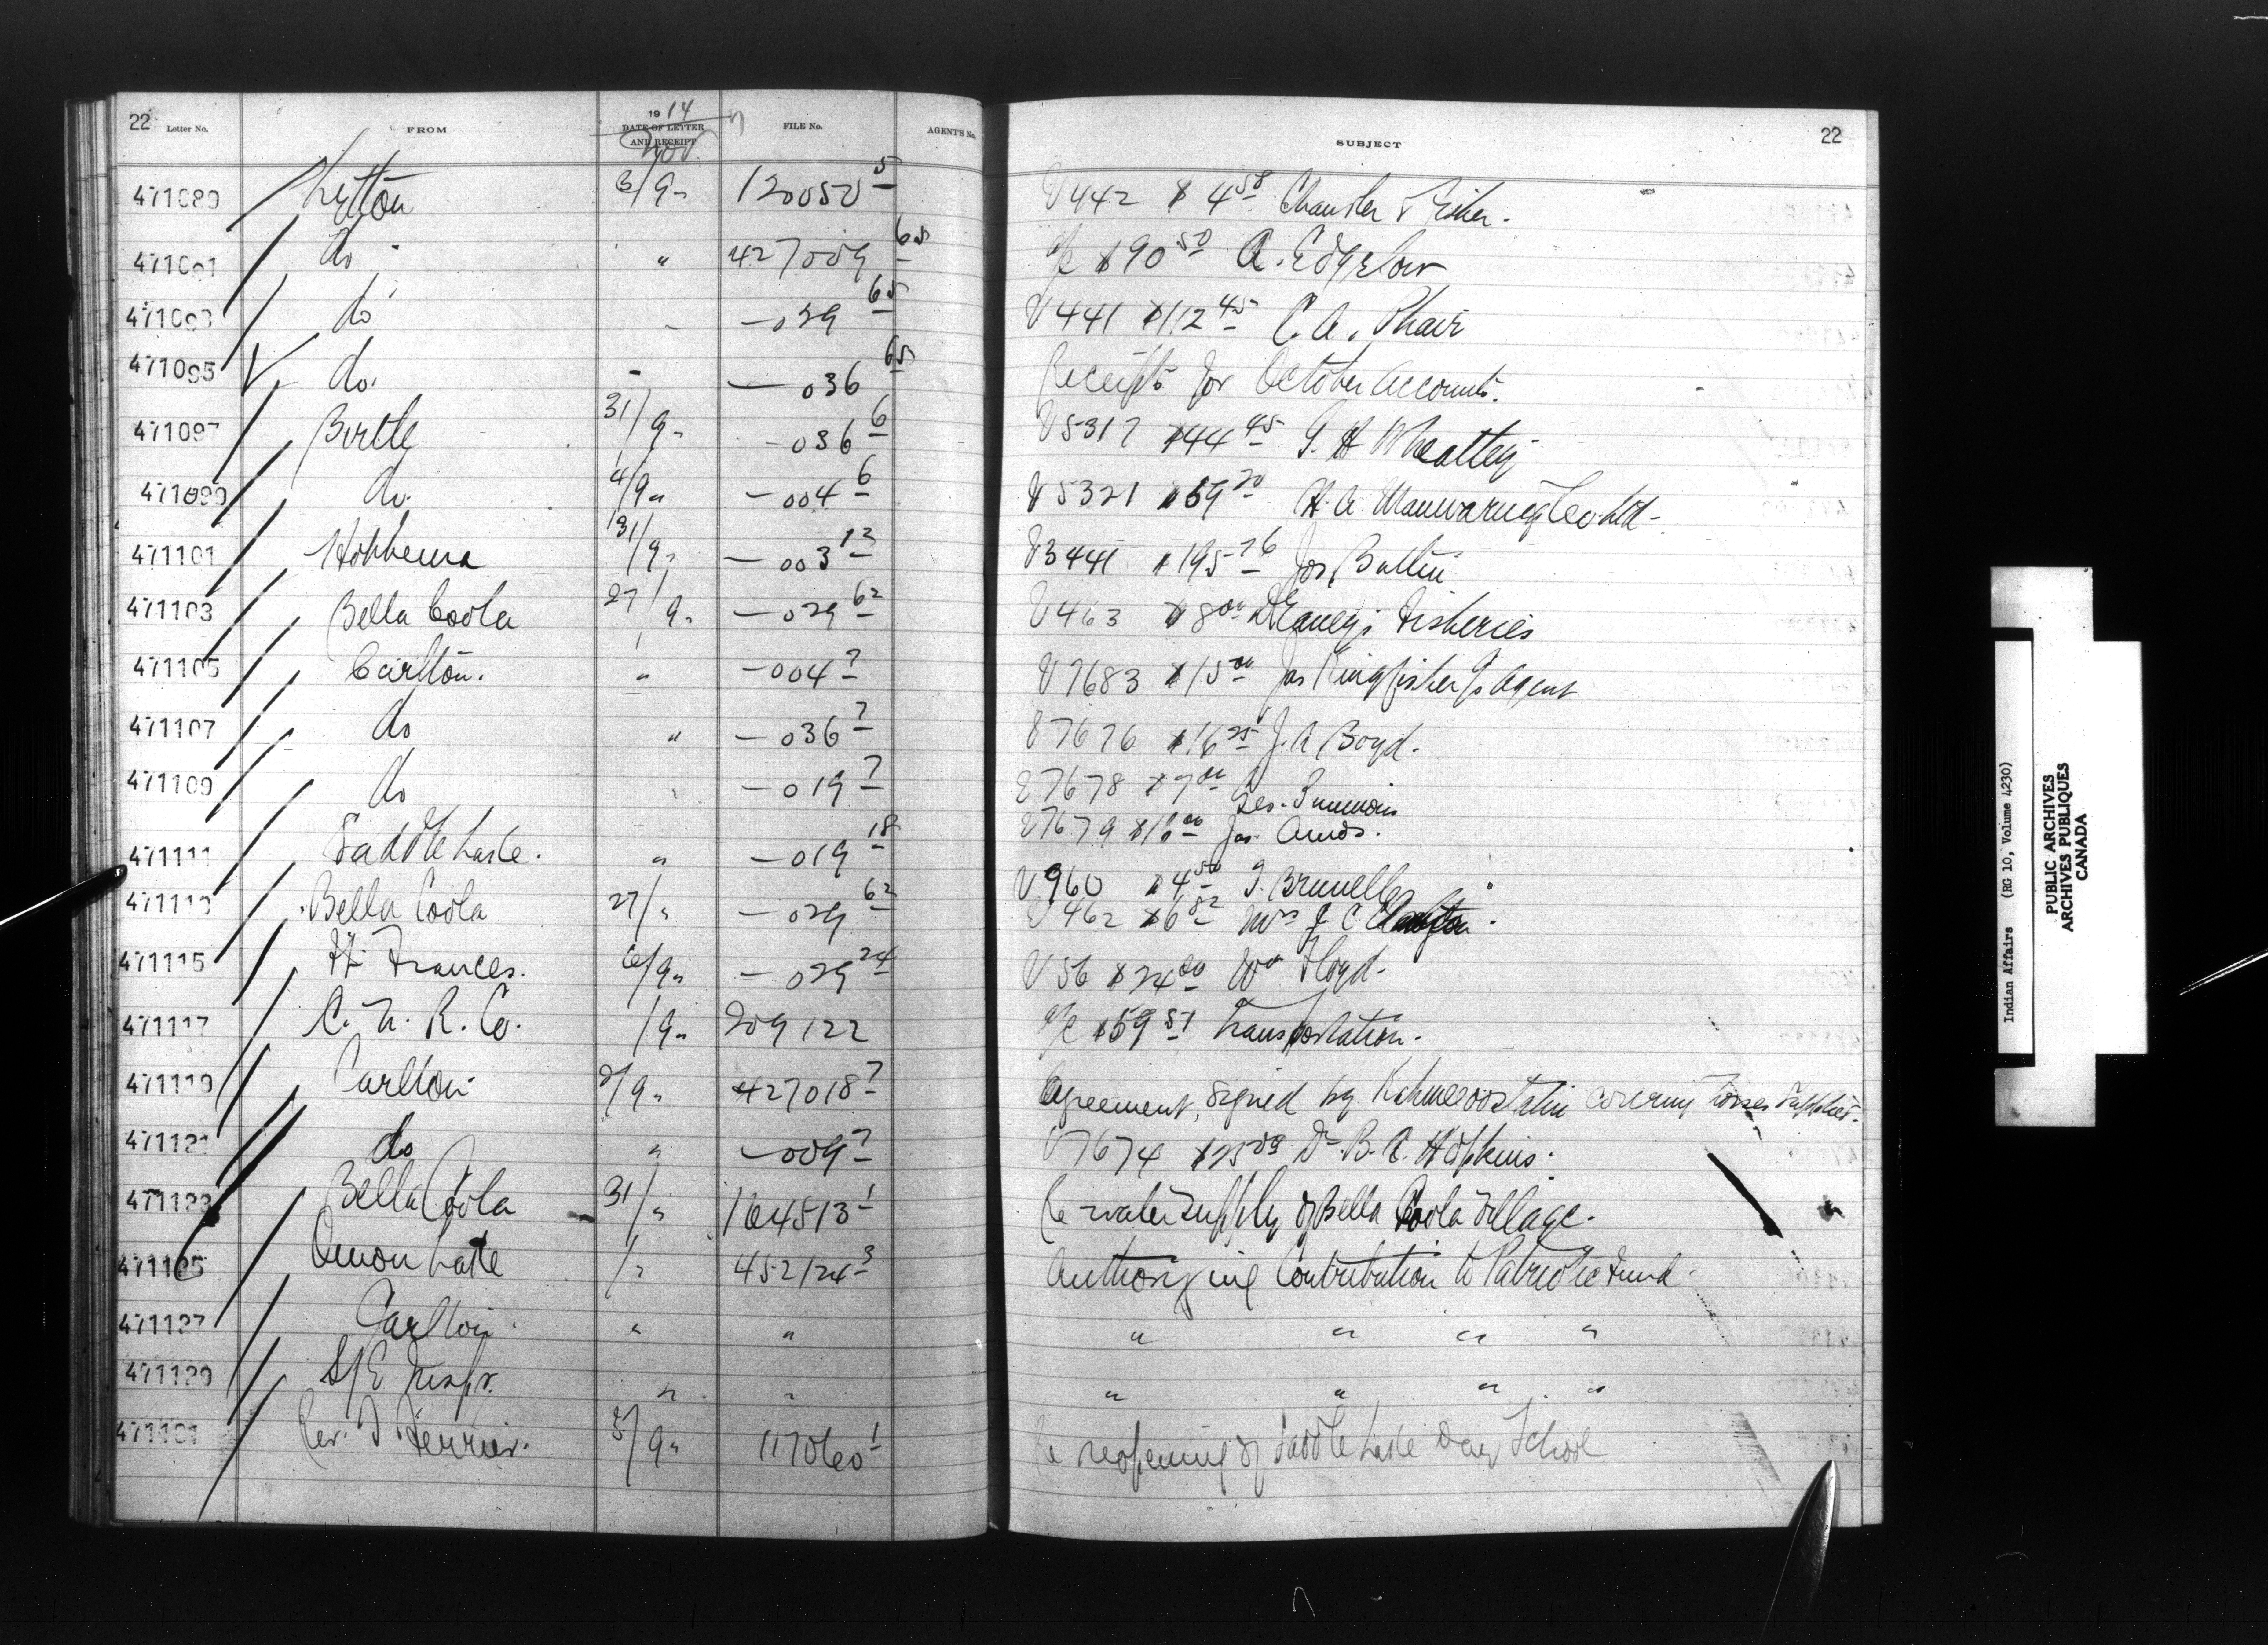 22 Letter No. FROM 1914 DATE OF LETTER AND RECEIPT Nov FILE No. AGENT'S No. SUBJECT 22
471089 Lytton 3/9 " 120050 5 V442 $4 58 Chandler & Fisher.
471091 do " 427009 65 a/c $90 50 A. Edgelow
471093 do " — 029 65 V441 $112 45 C. A. Phair
471095 do. " — 036 65 Receipts for October Accounts.
471097 Birtle 31/9 " — 036 6 V5317 $44 45 G. H Wheatley
471099 do. 4/9 " — 004 6 V5321 $69 20 H. A. Manwaring Co. Ltd —
471101 Hobbema 31/9 " — 003 12 V3441 $195 76 Jos
471103 Bella Coola 27/9 " — 029 62 V463 $8 00 Fisheries
471105 Carlton. " — 004 7 V7683 $15 00 Jas Kingfisher Agent
471107 do " — 036 7 V7676 $16 25 J. A Boyd.
471109 do " — 019 7 V7678 $7 00 Geo.
V7679 $16 00 Jas. Amos.
471111 Saddle Lake. " — 019 18 V960 $4 50 Brunelle
471113 Bella Coola 27/ " — 029 62 V462 $6 82 Mrs J. C Clayton.
471115 Ft Frances. 6/9 " — 029 24 V56 $24 00 Wm Floyd.
471117 C. N. R. Co. /9 " 209122 a/c $59 51 Transportation.
471119 Carlton 2/9 " 427018 7 Agreement, signed by covering horses supplied.
471121 do " — 009 7 V7674 $25 00 Dr. B. A. Hopkins.
471123 Bella Coola 31/ " 164513 1 Re water supply of Bella Coola Village.
471125 Onion Lake / " 452124 3 Authorizing Contribution to Patriotic Fund.
471127 Carlton. " " " " " "
471129 S/E Inspr. " " " " " "
471131 Rev. T Ferrier. 5/9 " 117060 1 Re reopening of Saddle Lake Day School
Indian Affairs (RG 10, Volume 4230)
PUBLIC ARCHIVES
ARCHIVES PUBLIQUES
CANADA